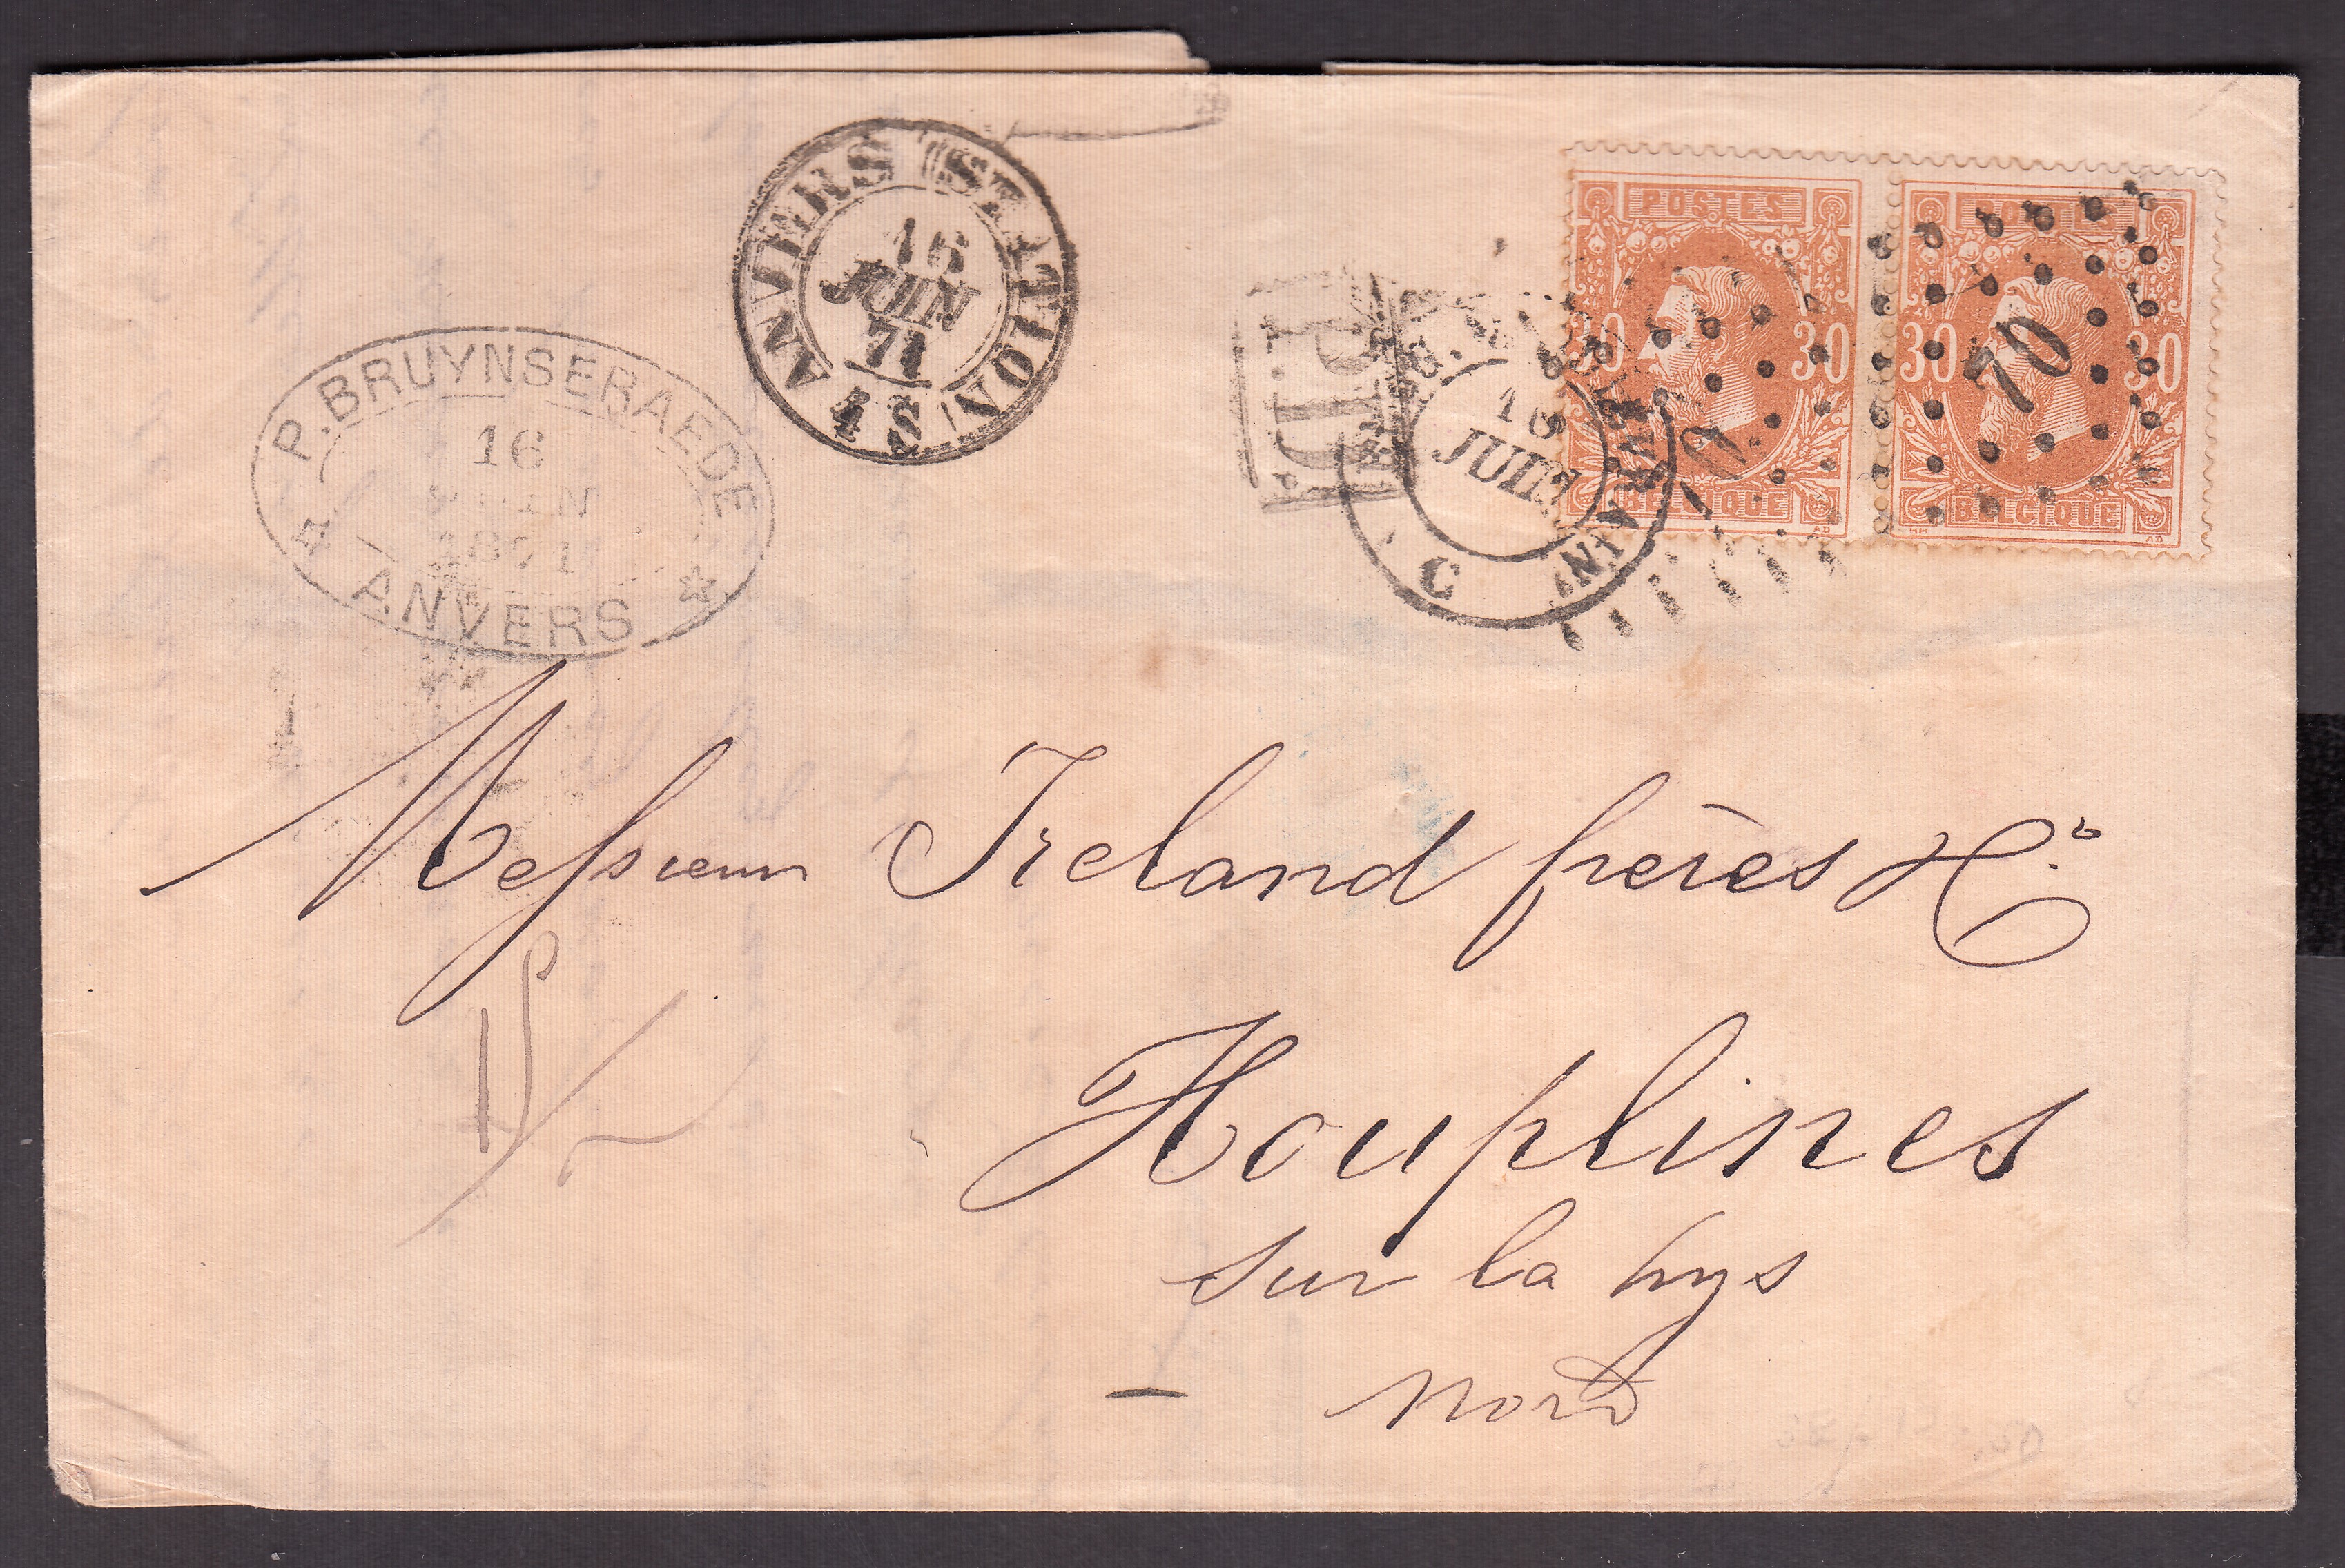 ANVERS (STATION)
16
JUIN
71
4 S
P. BRUYNSERAEDE
16
JUIN
1871
ANVERS
P.D.
16
JUIN
C
POSTES
30 30
BELGIQUE
POSTES
30 30
BELGIQUE
70
Messieurs Ireland frères & Cº
Houplines
sur la Lys
Nord